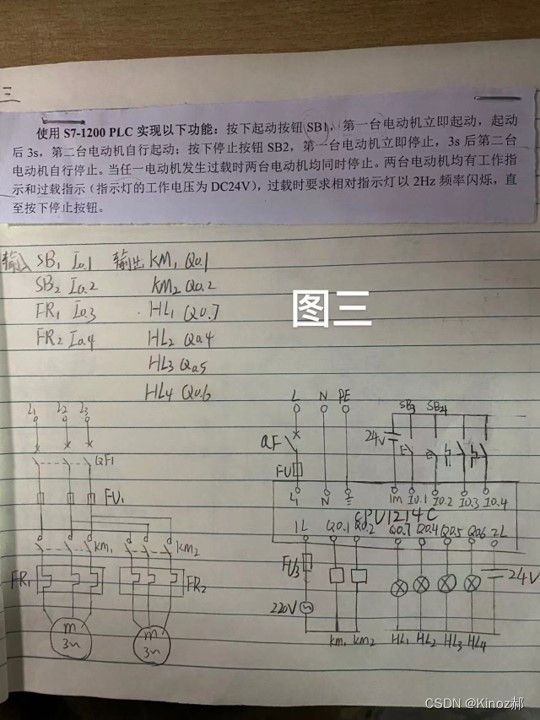 三
使用 S7-1200 PLC 实现以下功能：按下起动按钮 SB1，第一台电动机立即起动，起动
后 3s，第二台电动机自行起动；按下停止按钮 SB2，第一电动机立即停止，3s 后第二台
电动机自行停止。当任一电动机发生过载时两台电动机均同时停止。两台电动机均有工作指
示和过载指示（指示灯的工作电压为 DC24V），过载时要求相对指示灯以 2Hz 频率闪烁，直
至按下停止按钮。
输入 SB1 I0.1 输出 KM1 Q0.1
SB2 I0.2 KM2 Q0.2
FR1 I0.3 HL1 Q0.7
FR2 I0.4 HL2 Q0.4
HL3 Q0.5
HL4 Q0.6
图三
L1 L2 L3
QF1
FU1
KM1 KM2
FR1 FR2
M 3~ M 3~
L N PE
QF
FU
24V
L1 N 1M I0.1 I0.2 I0.3 I0.4
CPU1214C
1L Q0.1 Q0.2 Q0.7 Q0.4 Q0.5 Q0.6 2L
FU3
24V
220V
KM1 KM2 HL1 HL2 HL3 HL4
CSDN @Kinoz郝